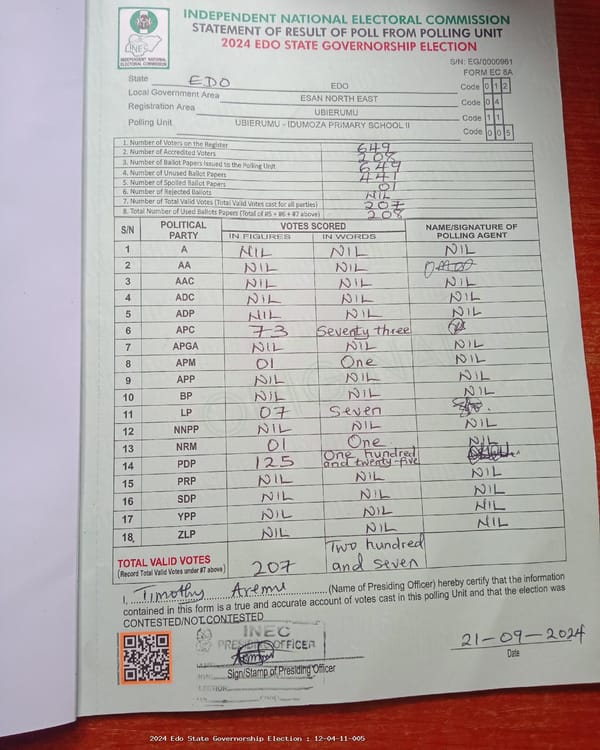 INDEPENDENT NATIONAL ELECTORAL COMMISSION
STATEMENT OF RESULT OF POLL FROM POLLING UNIT
2024 EDO STATE GOVERNORSHIP ELECTION
INEC
INDEPENDENT NATIONAL
ELECTORAL COMMISSION
S/N: EG/0000961
FORM EC 8A
State EDO EDO Code 0 1 2
Local Government Area ESAN NORTH EAST Code 0 4
Registration Area UBIERUMU Code 1 1
Polling Unit UBIERUMU - IDUMOZA PRIMARY SCHOOL II Code 0 0 5
1. Number of Voters on the Register 649
2. Number of Accredited Voters 208
3. Number of Ballot Papers Issued to the Polling Unit 649
4. Number of Unused Ballot Papers 441
5. Number of Spoiled Ballot Papers 01
6. Number of Rejected Ballots NIL
7. Number of Total Valid Votes (Total Valid Votes cast for all parties) 207
8. Total Number of Used Ballots Papers (Total of #5 + #6 + #7 above) 208
S/N POLITICAL PARTY VOTES SCORED NAME/SIGNATURE OF POLLING AGENT
IN FIGURES IN WORDS
1 A NIL NIL NIL
2 AA NIL NIL
3 AAC NIL NIL NIL
4 ADC NIL NIL NIL
5 ADP NIL NIL NIL
6 APC 73 Seventy three
7 APGA NIL NIL NIL
8 APM 01 One NIL
9 APP NIL NIL NIL
10 BP NIL NIL NIL
11 LP 07 Seven
12 NNPP NIL NIL NIL
13 NRM 01 One NIL
14 PDP 125 One hundred and twenty-five
15 PRP NIL NIL NIL
16 SDP NIL NIL NIL
17 YPP NIL NIL NIL
18. ZLP NIL NIL NIL
TOTAL VALID VOTES 207 Two hundred and seven
(Record Total Valid Votes under #7 above)
I, Timothy Aremu (Name of Presiding Officer) hereby certify that the information
contained in this form is a true and accurate account of votes cast in this polling Unit and that the election was
CONTESTED/NOT CONTESTED
INEC
PRESIDING OFFICER
Sign/Stamp of Presiding Officer
21-09-2024
Date
2024 Edo State Governorship Election : 12-04-11-005